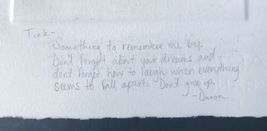 Tink -
Something to remember me by.
Don't forget about your dreams and
don't forget how to laugh when everything
seems to fall apart. Don't give up.